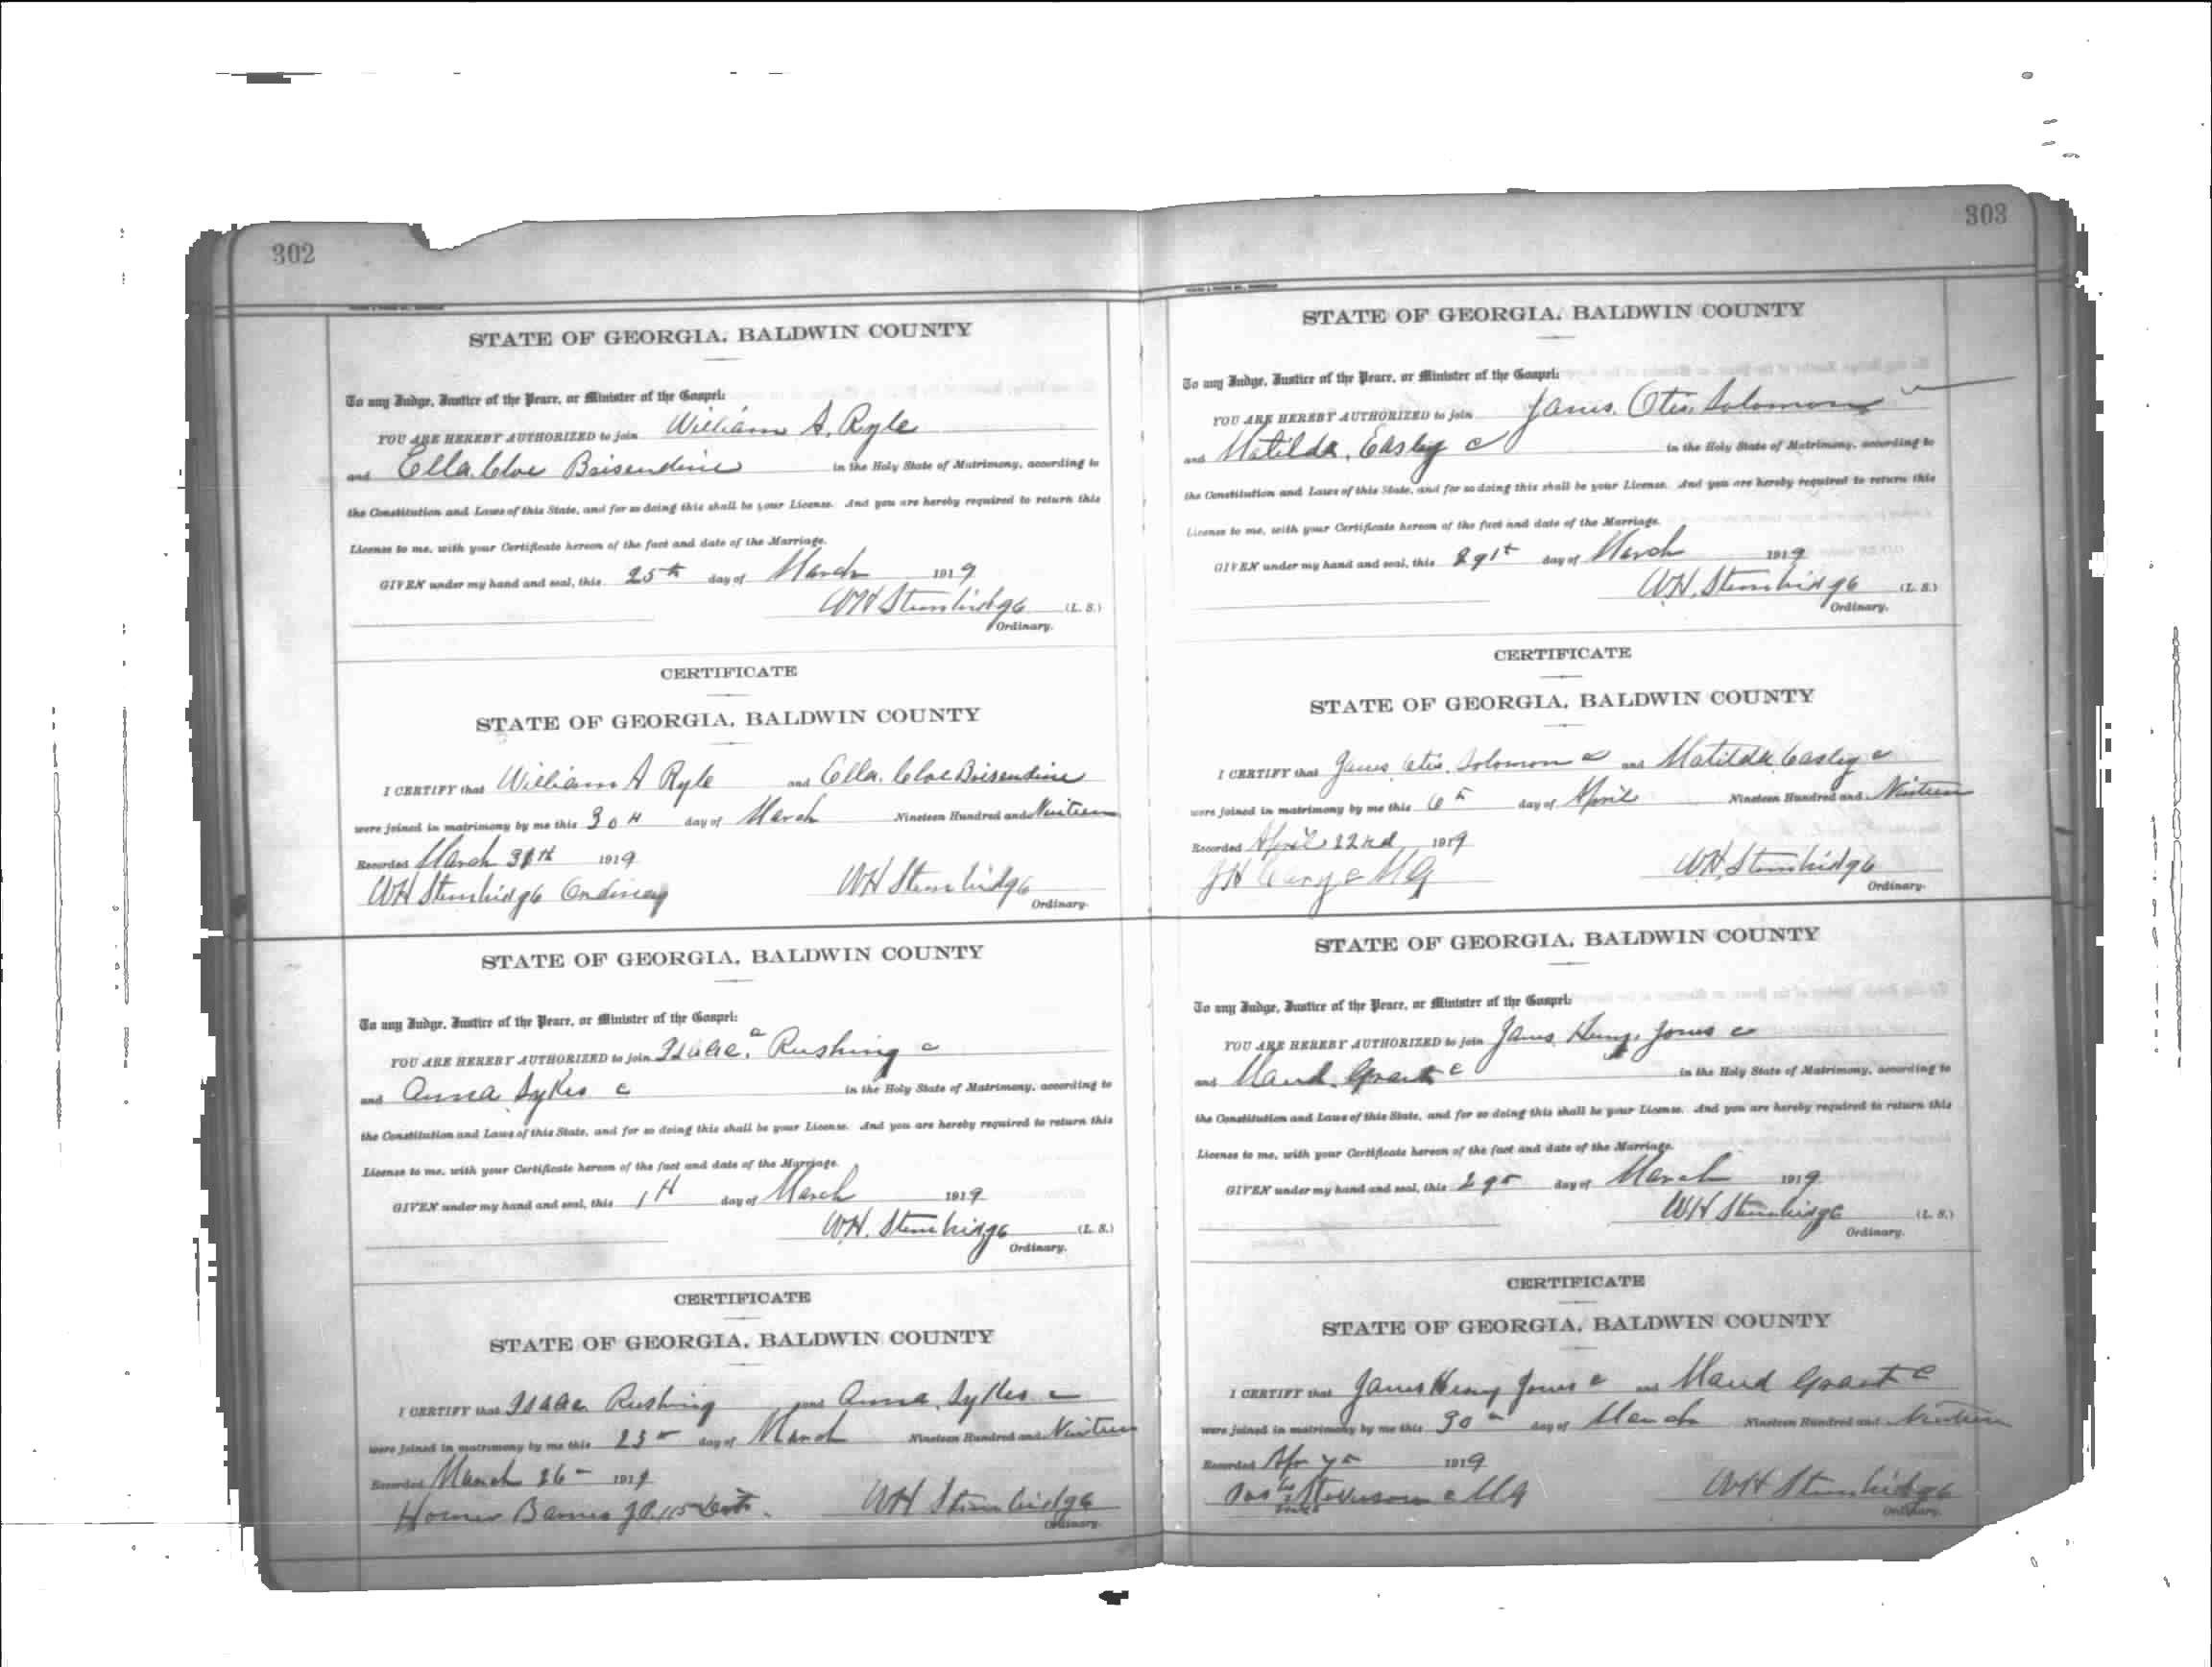 302
STATE OF GEORGIA, BALDWIN COUNTY
To any Judge, Justice of the Peace, or Minister of the Gospel:
YOU ARE HEREBY AUTHORIZED to join William A. Ryle
and Ella Cloe Brisendine in the Holy State of Matrimony, according to
the Constitution and Laws of this State, and for so doing this shall be your License. And you are hereby required to return this
License to me, with your Certificate hereon of the fact and date of the Marriage.
GIVEN under my hand and seal, this 25th day of March 1919
WH Stembridge (L. S.)
Ordinary.
CERTIFICATE
STATE OF GEORGIA, BALDWIN COUNTY
I CERTIFY that William A Ryle and Ella Cloe Brisendine
were joined in matrimony by me this 30th day of March Nineteen Hundred and Ninteen
Recorded March 31th 1919
WH Stembridge Ordinary WH Stembridge
Ordinary.
STATE OF GEORGIA, BALDWIN COUNTY
To any Judge, Justice of the Peace, or Minister of the Gospel:
YOU ARE HEREBY AUTHORIZED to join Isaac Rushing c
and Anna Sykes c in the Holy State of Matrimony, according to
the Constitution and Laws of this State, and for so doing this shall be your License. And you are hereby required to return this
License to me, with your Certificate hereon of the fact and date of the Marriage.
GIVEN under my hand and seal, this 1st day of March 1919
W.H. Stembridge (L. S.)
Ordinary.
CERTIFICATE
STATE OF GEORGIA, BALDWIN COUNTY
I CERTIFY that Isaac Rushing and Anna Sykes c
were joined in matrimony by me this 23 day of March Nineteen Hundred and Ninteen
Recorded March 26 1919
Homer Barnes J.P. 115 Dist. WH Stembridge
Ordinary.
303
STATE OF GEORGIA, BALDWIN COUNTY
To any Judge, Justice of the Peace, or Minister of the Gospel:
YOU ARE HEREBY AUTHORIZED to join James Otis Solomon
and Matilda Easley c in the Holy State of Matrimony, according to
the Constitution and Laws of this State, and for so doing this shall be your License. And you are hereby required to return this
License to me, with your Certificate hereon of the fact and date of the Marriage.
GIVEN under my hand and seal, this 29th day of March 1919
W.H. Stembridge (L. S.)
Ordinary.
CERTIFICATE
STATE OF GEORGIA, BALDWIN COUNTY
I CERTIFY that James Otis Solomon c and Matilda Easley c
were joined in matrimony by me this 6th day of April Nineteen Hundred and Ninteen
Recorded April 22nd 1919
JH MG W.H. Stembridge
Ordinary.
STATE OF GEORGIA, BALDWIN COUNTY
To any Judge, Justice of the Peace, or Minister of the Gospel:
YOU ARE HEREBY AUTHORIZED to join James Henry Jones c
and Maud Grant c in the Holy State of Matrimony, according to
the Constitution and Laws of this State, and for so doing this shall be your License. And you are hereby required to return this
License to me, with your Certificate hereon of the fact and date of the Marriage.
GIVEN under my hand and seal, this 29 day of March 1919
WH Stembridge (L. S.)
Ordinary.
CERTIFICATE
STATE OF GEORGIA, BALDWIN COUNTY
I CERTIFY that James Henry Jones c and Maud Grant c
were joined in matrimony by me this 30 day of March Nineteen Hundred and Ninteen
Recorded Apr 1919
Stevenson c MG WH Stembridge
Ordinary.